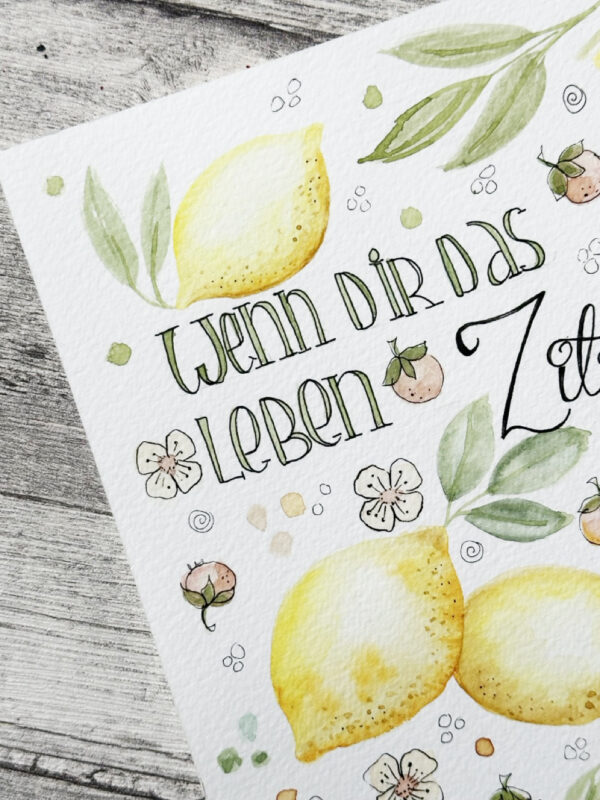 Wenn DiR Das
Leben Zit